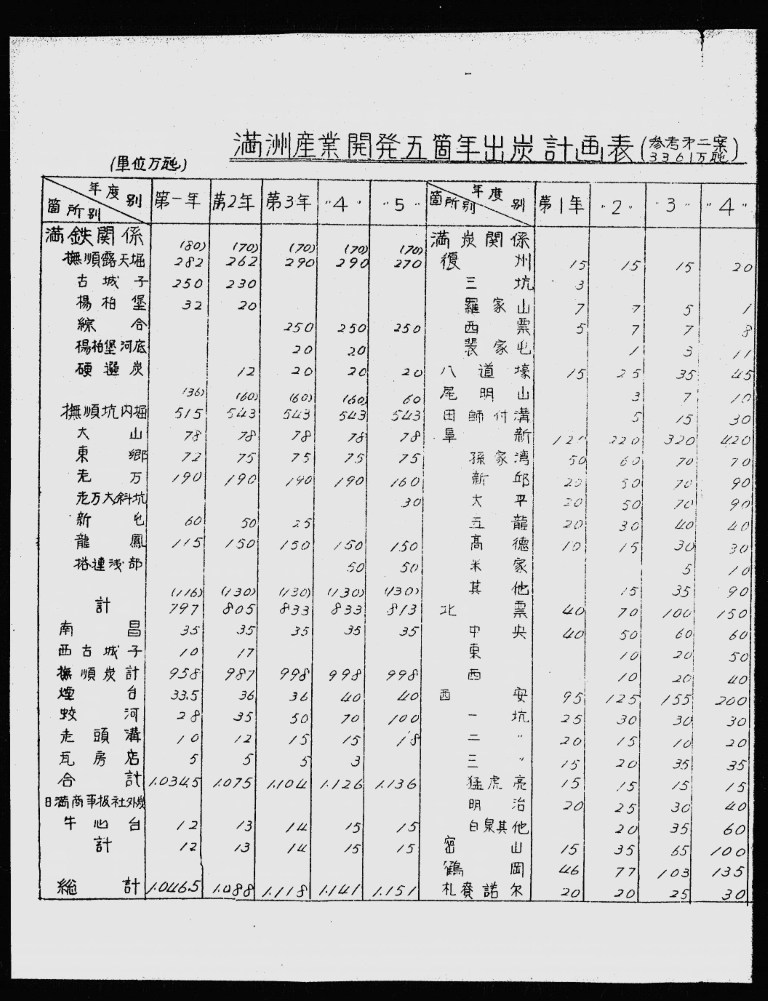 満洲産業開発五箇年出炭計画表(参考才二案 3361万瓲)
(単位万瓲)
箇所別 年度別 第一年 第2年 第3年 〃4〃 〃5〃
満鉄関係 (80) (70) (70) (70) (70)
撫順露天堀 282 262 290 290 270
古城子 250 230
楊柏堡 32 20
綜合 250 250 250
楊柏堡河底 20 20
硬選炭 12 20 20 20
(36) (60) (60) (60) 60
撫順坑内堀 515 543 543 543 543
大山 78 78 78 78 78
東郷 72 75 75 75 75
老万 190 190 190 190 160
老万大斜坑 30
新屯 60 50 25
龍鳳 115 150 150 150 150
搭連浅部 50 50
(116) (130) (130) (130) (130)
計 797 805 833 833 813
南昌 35 35 35 35 35
西古城子 10 17
撫順炭計 958 987 998 998 998
煙台 33.5 36 36 40 40
蛟河 28 35 50 70 100
老頭溝 10 12 15 15 18
瓦房店 5 5 5 3
合計 1.034.5 1.075 1.104 1.126 1.136
日満商事扱社外炭
牛心台 12 13 14 15 15
計 12 13 14 15 15
総計 1.046.5 1.088 1.118 1.141 1.151
箇所別 年度別 第1年 〃2〃 〃3〃 〃4〃
満炭関係
復州 15 15 15 20
三坑 3
羅家山 7 7 5 1
西票 5 7 7 8
裴家屯 1 3 11
八道壕 15 25 35 45
尾明山 3 7 10
田師付溝 5 15 30
阜新 120 220 320 420
孫家湾 50 60 70 70
新邱 20 50 70 90
太平 20 50 70 90
五龍 20 30 40 40
高德 10 15 30 30
米家 5 10
其他 15 35 90
北票 40 70 100 150
中央 40 50 60 60
東 10 20 50
西 10 20 40
西安 95 125 155 200
一坑 25 30 30 30
二〃 20 15 10 20
三〃 15 20 35 35
猛虎亮 15 15 15 15
明治 20 25 30 40
白泉其他 20 35 60
密山 15 35 65 100
鶴岡 46 77 103 135
札賚諾尔 20 20 25 30